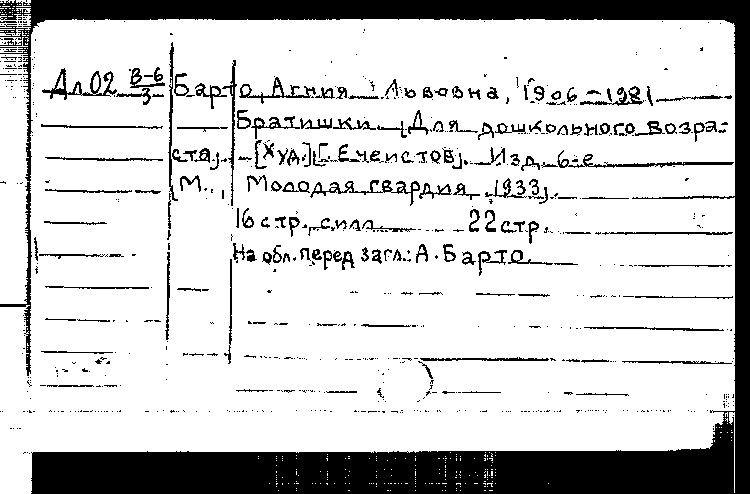 Ал02 В-6/3 Барто, Агния Львовна, 1906-1981
Братишки. [Для дошкольного возра-
ста]. - [Худ.] Г. Ечеистов]. Изд. 6-е
[М.], Молодая гвардия, 1933].
16 стр., с илл. 22 стр.
На обл. перед загл.: А. Барто.